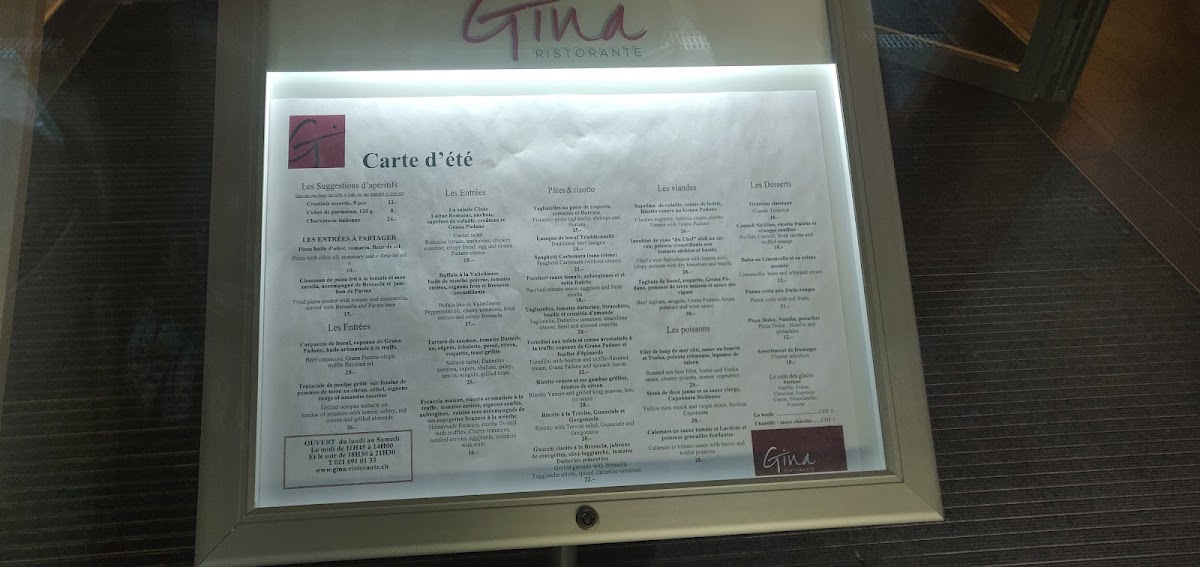 Gina
RISTORANTE
G
Carte d'été
Les Suggestions d'apéritifs
Crostinis assortis, 8 pcs 12.-
Cubes de parmesan, 120 g 8.-
Charcuterie italienne 24.-
LES ENTRÉES À PARTAGER
Pizza huile d'olive, romarin, fleur de sel
Pizza with olive oil, rosemary and « fleur de sel »
10.-
Chausson de pizza frit à la tomate et moz
zarella, accompagné de Bresaola et jam-
bon de Parme
Fried pizza pocket with tomato and mozzarella,
served with Bresaola and Parma ham
15.-
Les Entrées
Carpaccio de bœuf, copeaux de Grana
Padano, huile aromatisée à la truffe,
Beef carpaccio, Grana Padano chips,
truffle flavored oil
Tentacule de poulpe grillé sur fondue de
pommes de terre au citron, céleri, oignons
rouge et amandes torréfiées
Grilled octopus tentacle on
fondue of potatoes with lemon, celery, red
onions and grilled almonds
26.-
OUVERT du lundi au Samedi
Le midi de 11H45 à 14H00
Et le soir de 18H30 à 21H30
T 021 691 01 33
www.gina-ristorante.ch
Les Entrées
La salade César
Laitue Romaine, anchois,
suprême de volaille, croûtons et
Grana Padano
Caesar salad
Romaine lettuce, anchovies, chicken
supreme, crispy bread, egg and Grana
Padano cheese
19.-
Buffala à la Valtellinese
huile de menthe poivrée, tomates
cerises, oignons frits et Bresaola
croustillante
Bufala like in Valtellinese
Peppermint oil, cherry tomatoes, fried
onions and crispy Bresaola
17.-
Tartare de saumon, tomates Datteri-
no, câpres, échalote, persil, citron,
roquette, toast grillés
Salmon tartar, Datterino
tomatoes, capers, shallots, parsley,
lemon, arugula, grilled toast
25.-
Focaccia maison, ricotta aromatisée à la
truffe, tomates cerises, oignons confits,
aubergines, raisins secs accompagnés de
ses courgettes Scapece à la menthe
Homemade focaccia, ricotta flavored
with truffles, Cherry tomatoes,
candied onions, eggplants, zucchini
with mint
16.-
Pâtes & risotto
Tagliatelles au pesto de roquette,
crevettes et Burrata
Lasagne de bœuf Traditionnelle
Traditional beef lasagna
Spaghetti Carbonara (sans crème)
Spaghetti Carbonara (without cream)
21.-
Paccheri sauce tomate, aubergines et ri-
cotta fraîche
Paccheri tomato sauce, eggplant and fresh
ricotta
Tagliatelles, tomates datterino, Stracchino,
basilic et crumble d'amande
Tagliatelle, Datterino tomatoes, stracchino
cheese, basil and almond crumble
Tortellini aux bolets et crème aromatisée à
la truffe, copeaux de Grana Padano et
feuilles d'épinards
Tortellini with boletus and truffle-flavored
cream, Grana Padano and spinach leaves
22.-
Risotto venere et ses gambas grillées,
écume de citron
Risotto Venere and grilled king prawns, lem-
on sauce
28.-
Risotto à la Trévise, Guanciale et
Gorgonzola
Risotto with Trevise salad, Guanciale and
Gorgonzola
20.-
Gnocchi rissolés à la Bresaola, julienne
de courgettes, olive taggiasche, tomates
Datterino pimentées
Grilled gnocchi with Bresaola,
Taggiasche olives, spiced Datterino tomatoes
22.-
Les viandes
Suprême de volaille, crème de bolets,
Risotto venere au Grana Padano
Chicken supreme, boletus cream, risotto
Venere with Grana Padano
Involtini de veau "du Chef" aïoli au cit-
ron, polenta croustillante aux
tomates séchées et basilic
Tagliata de bœuf, roquette, Grana Pa-
dano, pommes de terre maison et sauce des
vignes
Beef tagliata, arugula, Grana Padano, house
potatoes and wine sauce
Les poissons
Filet de loup de mer rôti, sauce au beurre
et Tonka, polenta crémeuse, légumes de
saison
Roasted sea bass fillet, butter and Tonka
sauce, creamy polenta, season vegetables
29.-
Steak de thon jaune et sa sauce vierge,
Caponnata Sicilienne
Yellow tuna steak and virgin sauce, Sicilian
Caponata
Calamars en sauce tomate et Lardons et
pommes grenailles fondantes
Calamari in tomato sauce with bacon and
tender potatoes
Les Desserts
Tiramisu classique
Classic Tiramisu
10.-
Cannoli Sicilien, ricotta fraîche et
oranges confites
Sicilian Cannoli, fresh ricotta and
candied orange
Baba au Limoncello et sa crème
montée
Limoncello baba and whipped cream
12.-
Panna cotta aux fruits rouges
Panna cotta with red fruits
11.-
Pizza Dolce, Nutella, pistaches
Pizza Dolce : Nutella and
pistachios
12.-
Assortiment de fromages
Cheese selection
Le coin des glaces
Parfums
Gina
RISTORANTE